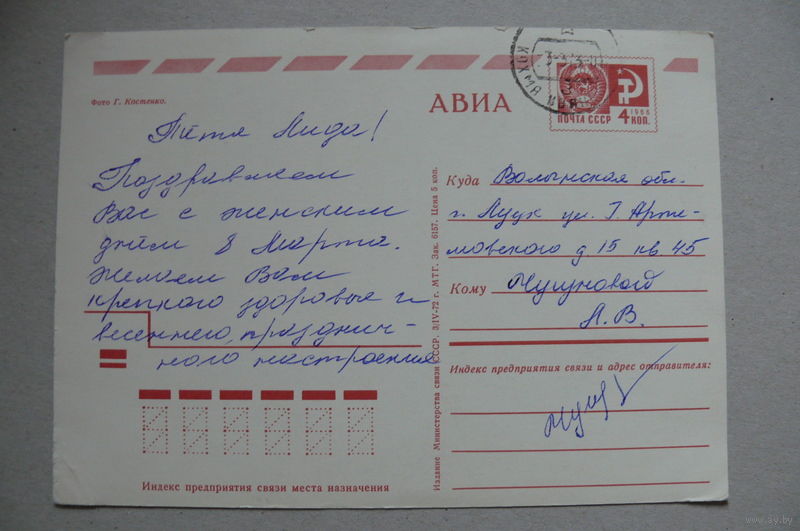 Фото Г. Костенко.
АВИА
ПОЧТА СССР
1966
4 КОП.
КОХМА
Тётя Лида!
Поздравляем
Вас с женским
днём 8 Марта.
Желаем Вам
крепкого здоровья и
весеннего, празднич-
ного настроения
Куда Волынская обл.
г. Луцк ул. Г. Арте-
мовского д. 15 кв. 45
Кому Чугуновой
Л. В.
Индекс предприятия связи и адрес отправителя:
Индекс предприятия связи места назначения
Издание Министерства связи СССР. 3/IV-72 г. МТГ. Зак. 6157. Цена 5 коп.
www.ay.by